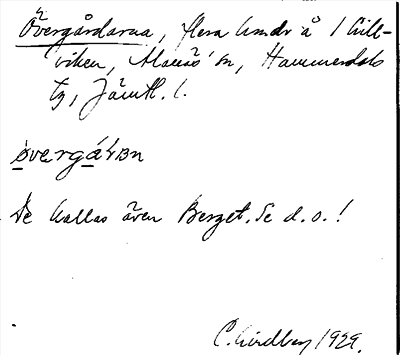 Övergårdarna, flera hmdr å 1 Gill-
viken, Alanäs sn, Hammerdals
tg, Jämtl. l.
øvergáɽɒn
De kallas även Berget. Se d.o.!
C. Lindberg 1929.